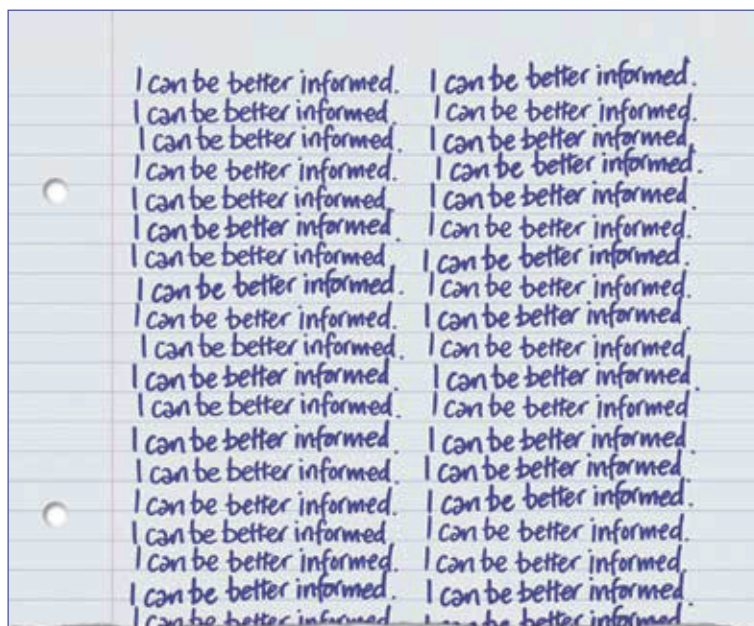 I can be better informed.
I can be better informed.
I can be better informed.
I can be better informed.
I can be better informed.
I can be better informed.
I can be better informed.
I can be better informed.
I can be better informed.
I can be better informed.
I can be better informed.
I can be better informed.
I can be better informed.
I can be better informed.
I can be better informed.
I can be better informed.
I can be better informed.
I can be better informed.
I can be better informed
I can be better informed.
I can be better informed.
I can be better informed.
I can be better informed.
I can be better informed.
I can be better informed.
I can be better informed.
I can be better informed.
I can be better informed.
I can be better informed.
I can be better informed.
I can be better informed
I can be better informed.
I can be better informed.
I can be better informed.
I can be better informed.
I can be better informed.
I can be better informed.
I can be better informed